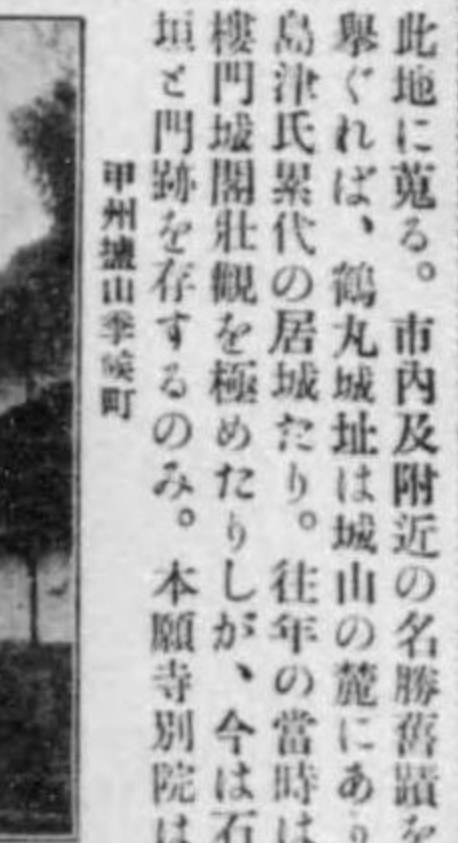 此地に蒐る。市內及附近の名勝舊蹟を
擧ぐれば、鶴丸城址は城山の麓にあり
島津氏累代の居城たり。往年の當時は
樓門城閣壯觀を極めたりしが、今は石
垣と門跡を存するのみ。本願寺別院は
甲州山季候町